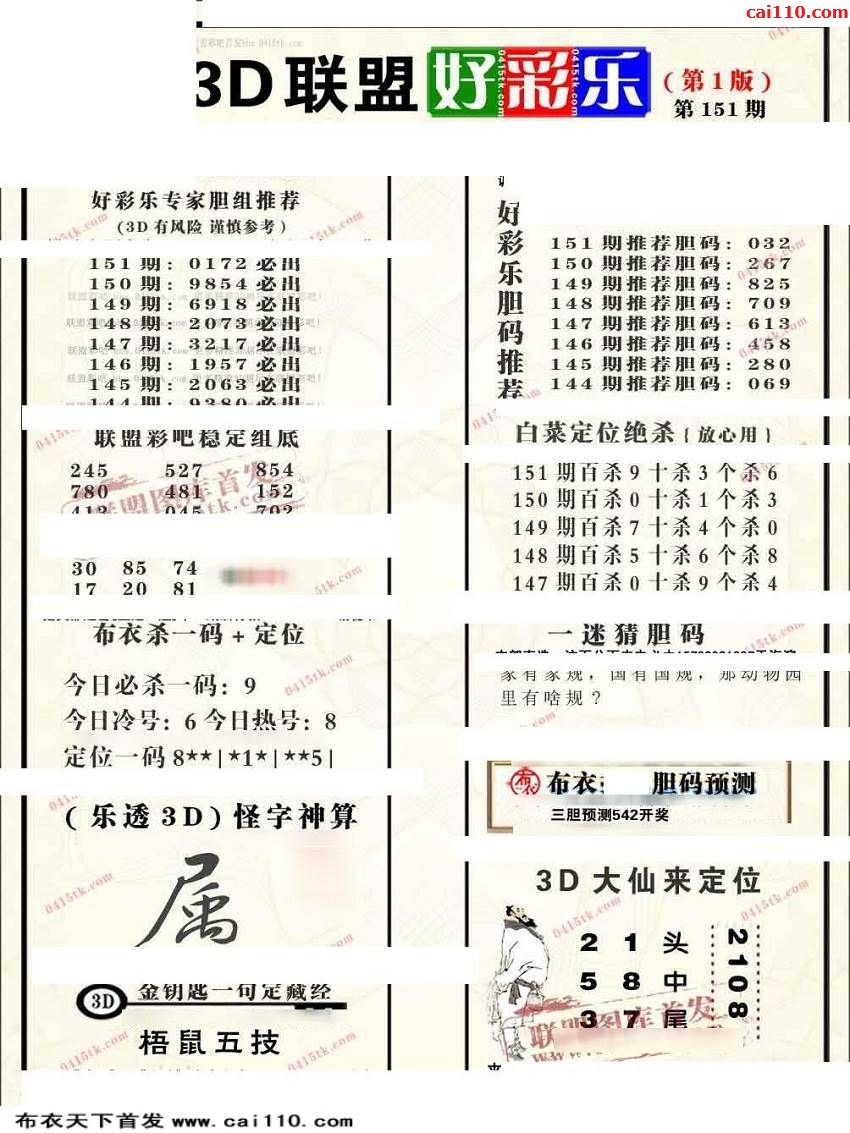 cai110.com
3D联盟好彩乐
(第1版)
第151期
好彩乐专家胆组推荐
(3D有风险 谨慎参考)
151期: 0172必出
150期: 9854必出
149期: 6918必出
148期: 2073必出
147期: 3217必出
146期: 1957必出
145期: 2063必出
144期: 9380必出
联盟彩吧稳定组底
245 527 854
780 481 152
412 045 702
30 85 74
17 20 81
布衣杀一码+定位
今日必杀一码: 9
今日冷号: 6 今日热号: 8
定位一码 8**|*1*|**5|
(乐透3D)怪字神算
属
3D 金钥匙一句定藏经
梧鼠五技
好彩乐胆码推荐
151期推荐胆码: 032
150期推荐胆码: 267
149期推荐胆码: 825
148期推荐胆码: 709
147期推荐胆码: 613
146期推荐胆码: 458
145期推荐胆码: 280
144期推荐胆码: 069
白菜定位绝杀{放心用}
151期百杀9十杀3个杀6
150期百杀0十杀1个杀3
149期百杀7十杀4个杀0
148期百杀5十杀6个杀8
147期百杀0十杀9个杀4
一迷猜胆码
家有家规，国有国规，那动物园
里有啥规？
布衣 胆码预测
三胆预测542开奖
3D大仙来定位
2 1 头
5 8 中
3 7 尾
2108
联盟图库首发
0415tk.com
布衣天下首发 www.cai110.com